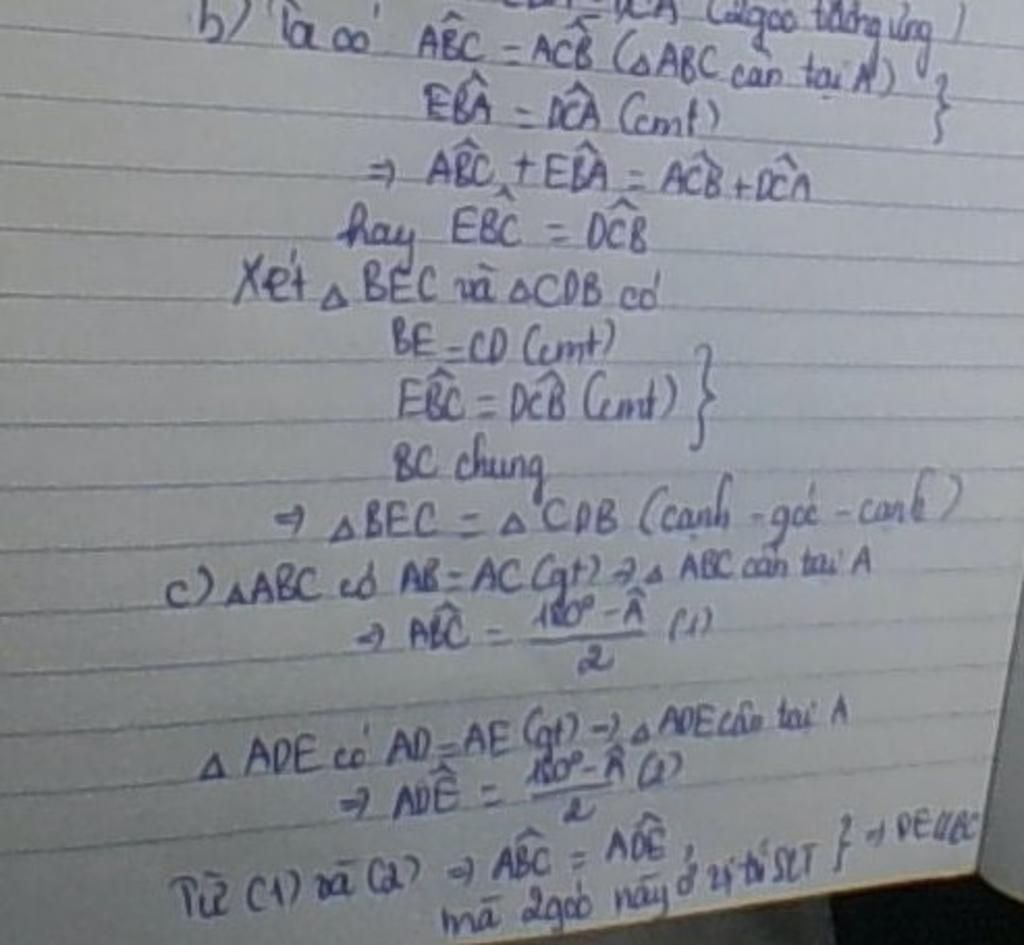 DCA (2 góc tương ứng)
b) Ta có ABĈ = ACB̂ (△ABC cân tại A)
EBÂ = DCÂ (cmt) }
⇒ ABĈ + EBÂ = ACB̂ + DCÂ
hay EBĈ = DCB̂
Xét △BEC và △CDB có
BE = CD (cmt)
EBĈ = DCB̂ (cmt) }
BC chung
⇒ △BEC = △CDB (cạnh - góc - cạnh)
c) △ABC có AB = AC (gt) ⇒ △ABC cân tại A
⇒ ABĈ = (180° - Â)/2 (1)
△ADE có AD = AE (gt) ⇒ △ADE cân tại A
⇒ ADÊ = (180° - Â)/2 (2)
Từ (1) và (2) ⇒ ABĈ = ADÊ } ⇒ DE // BC
mà 2 góc này ở vị trí SLT